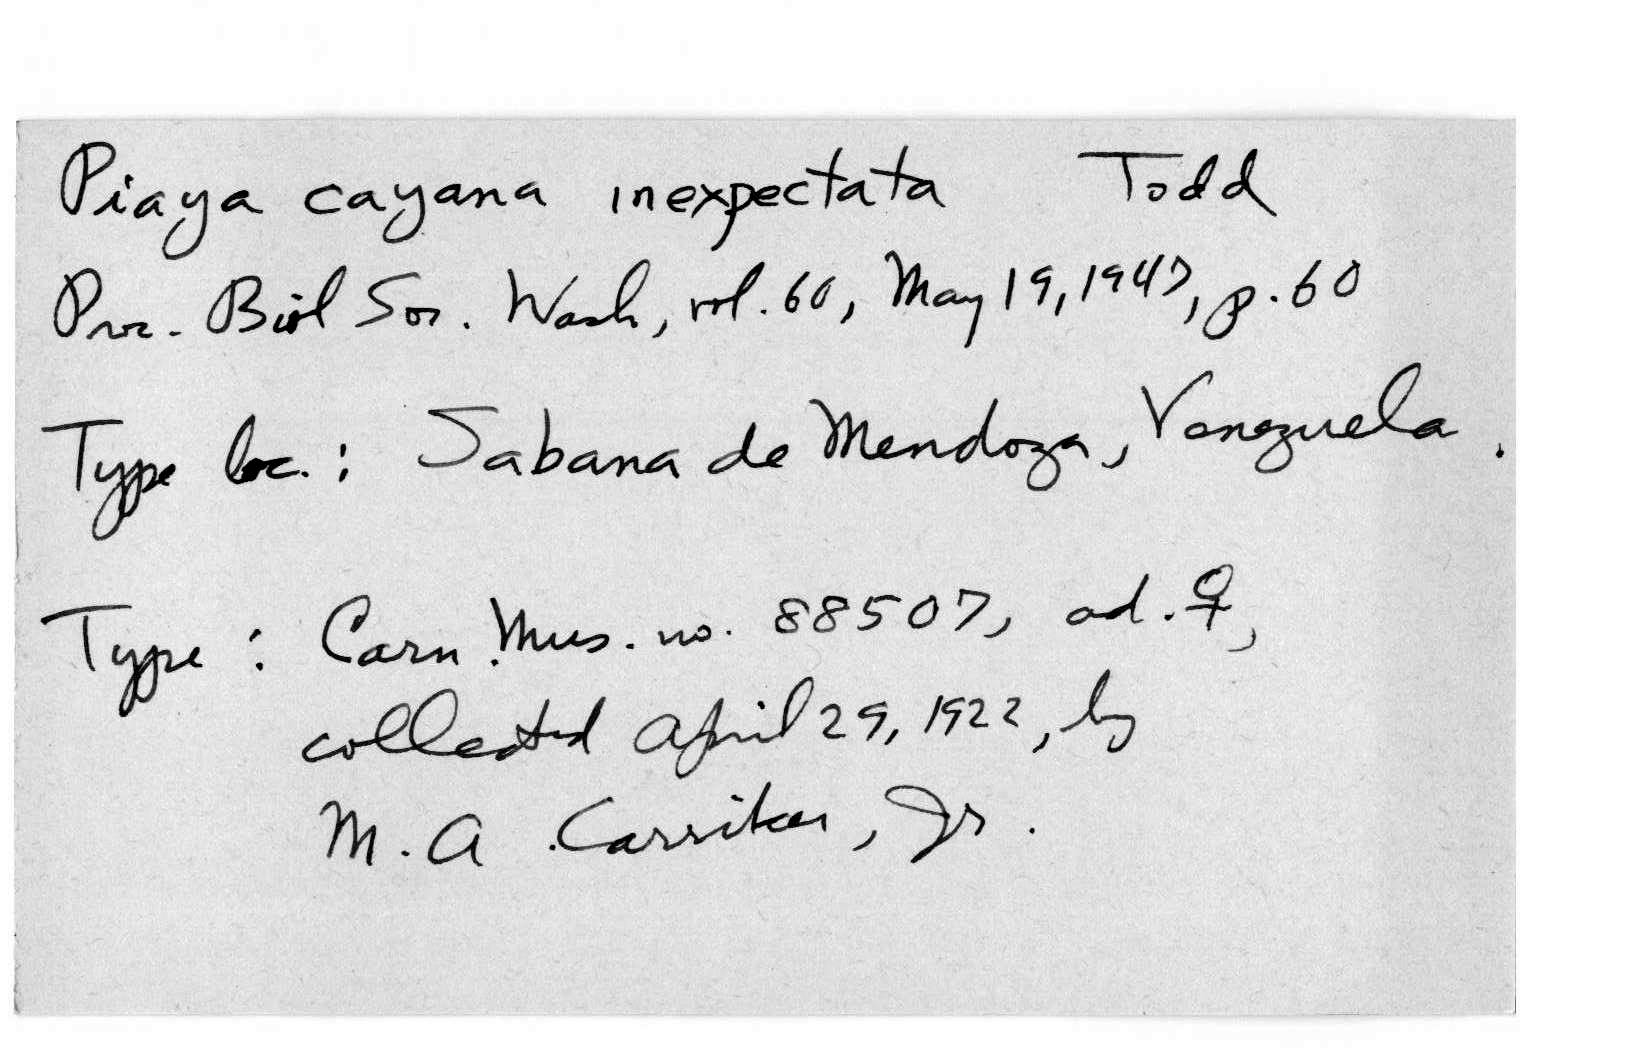 Piaya cayana inexpectata Todd
Proc. Biol Soc. Wash, vol. 60, May 19, 1947, p. 60
Type loc.: Sabana de Mendoza, Venezuela.
Type: Carn. Mus. no. 88507, ad. ♀,
collected April 29, 1922, by
M. A. Carriker, Jr.